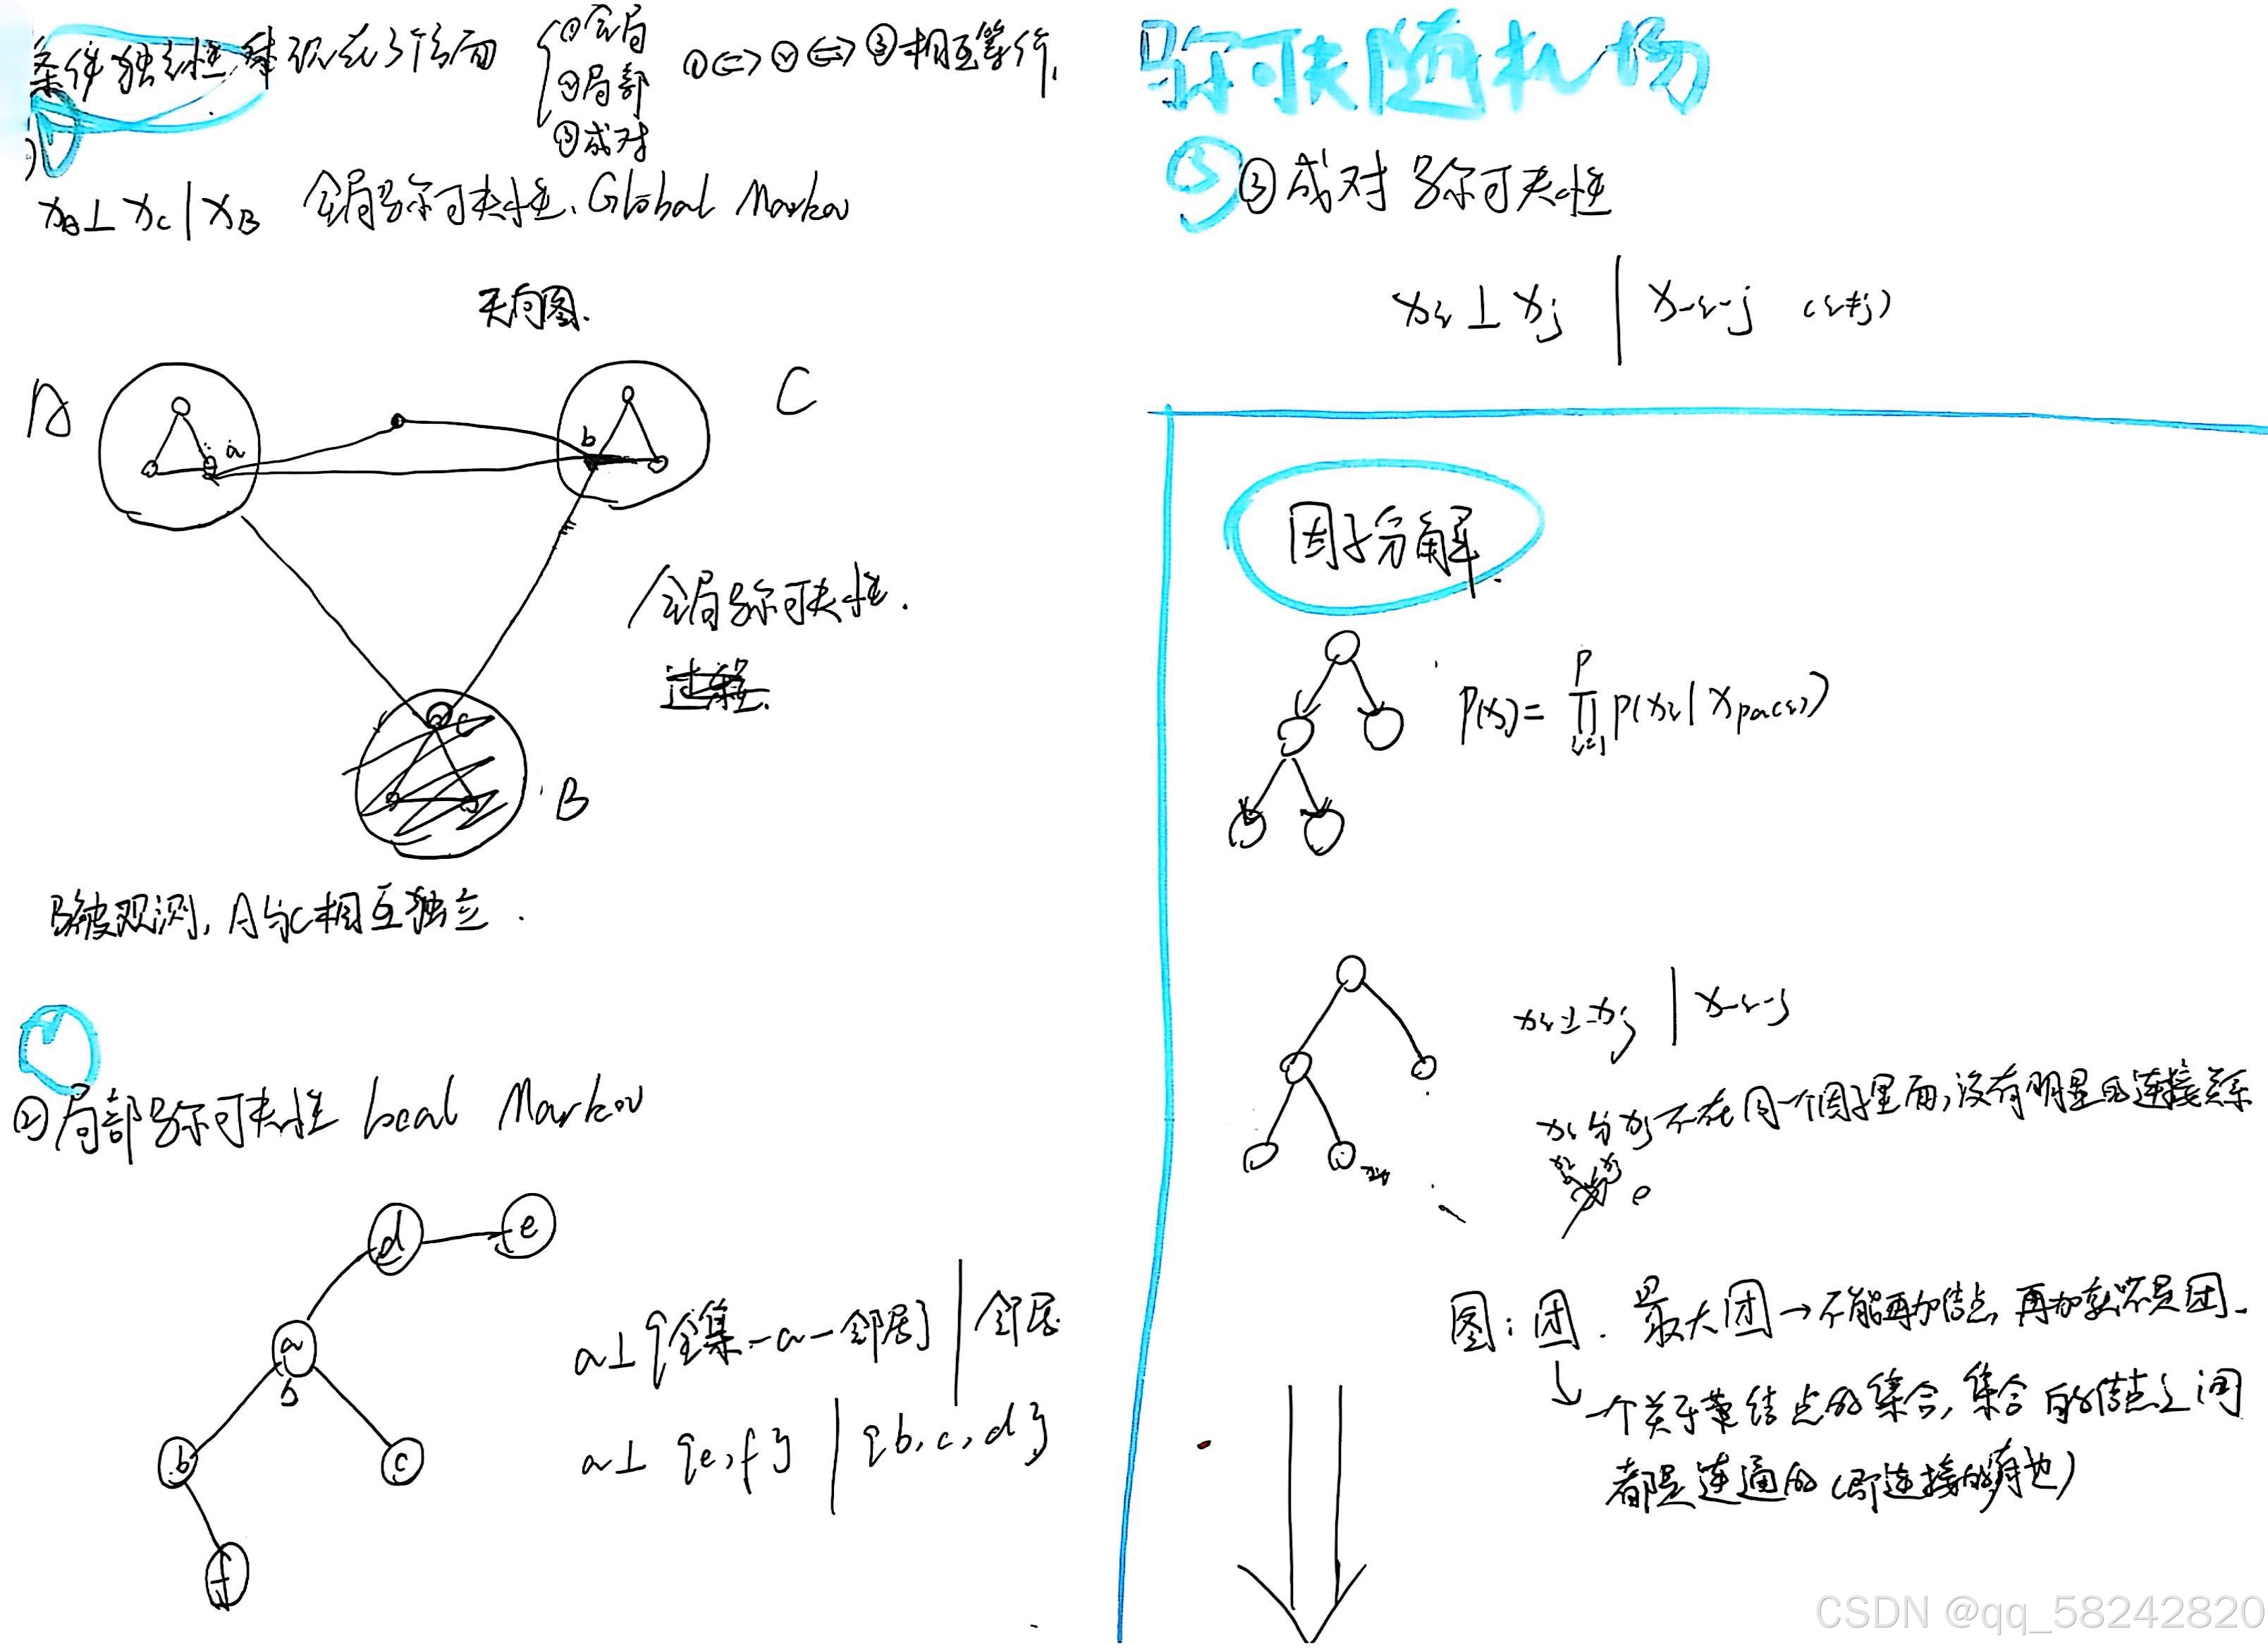 条件独立性体现在3个方面
①全局
②局部
③成对
①<=>②<=>③相互等价.
x_A⊥x_C|x_B 全局马尔可夫性. Global Markov
无向图.
A
C
a
b
全局马尔可夫性.
c
B
B被观测, A与C相互独立.
②局部马尔可夫性 local Markov
d
e
a
b
b
c
f
a⊥{全集-a-邻居}|邻居
a⊥{e,f}|{b,c,d}
马尔可夫随机场
③成对马尔可夫性
x_i⊥x_j|x_-i-j (i≠j)
因子分解.
P(x)=∏_{i=1}^{P}P(x_i|x_pa(i))
x_i⊥x_j|x_-i-j
x_i与x_j不在同一个因子里面,没有明显的连接关系
图:团. 最大团→不能再加结点,再加就不是团.
↓一个关于结点的集合,集合内的结点之间
都是连通的(即连接的有边)
CSDN @qq_58242820